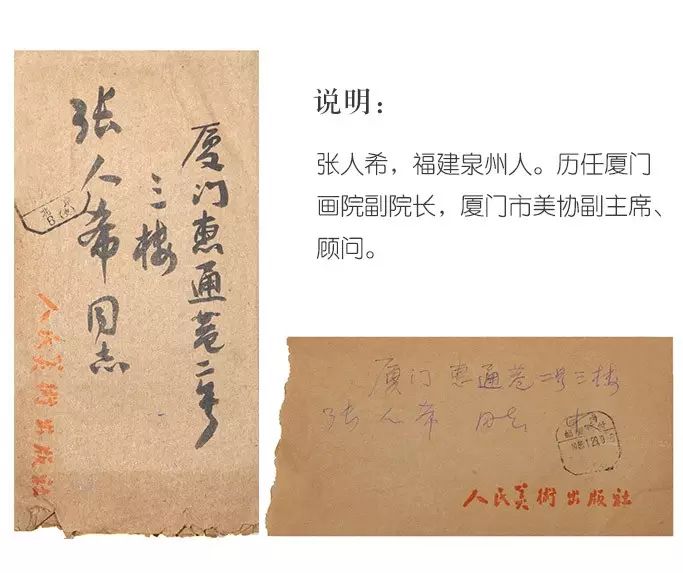 厦门惠通巷二号
三楼
张人希同志
人民美术出版社
说明：
张人希，福建泉州人。历任厦门
画院副院长，厦门市美协副主席、
顾问。
厦门惠通巷二号三楼
张人希同志
人民美術出版社